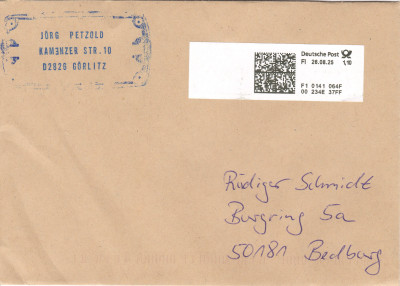 JÖRG PETZOLD
KAMENZER STR. 10
02826 GÖRLITZ
Deutsche Post
FI 26.08.25 1,10
F1 0141 064F
00 234E 37FF
Rüdiger Schmidt
Burgring 5a
50181 Bedburg